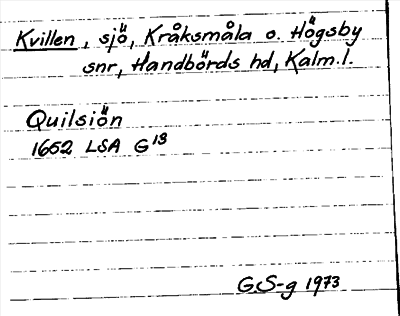 Kvillen, sjö, Kråksmåla o. Högsby
snr, Handbörds hd, Kalm.l.
Quilsiön
1652 LSA G13
G.S-g 1973